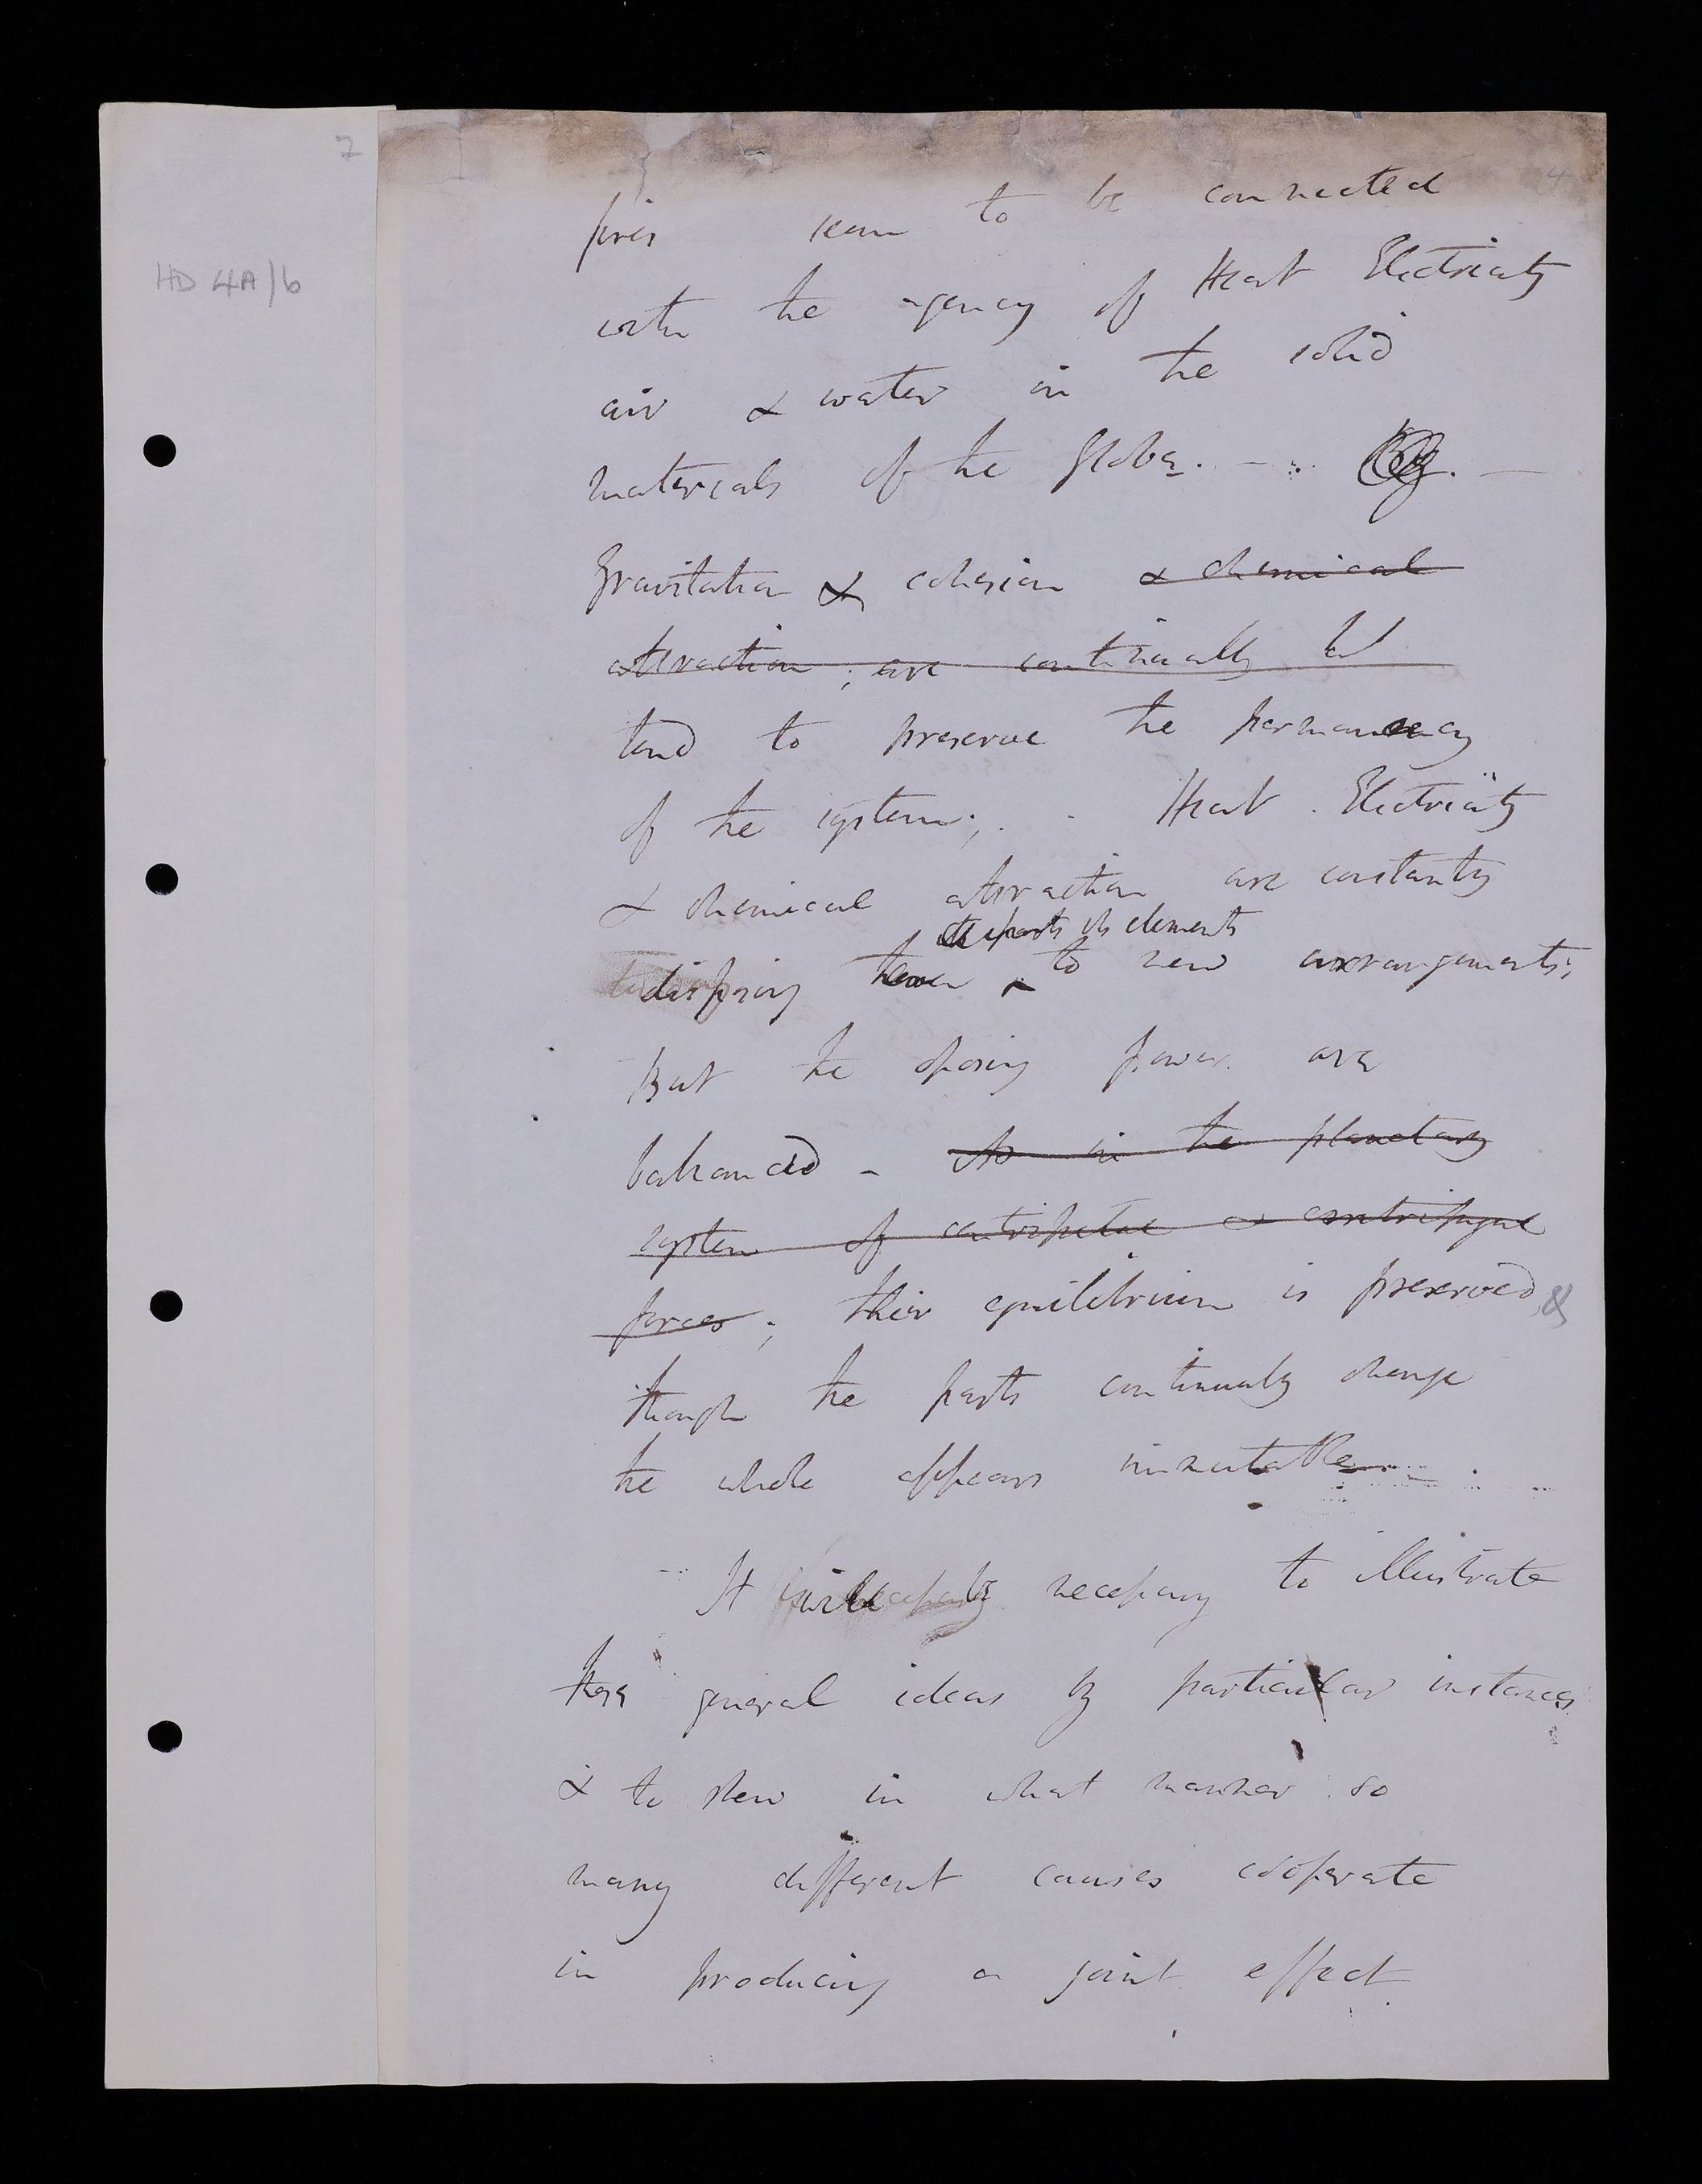 7
4
HD 4A/6
fires seem to be connected
with the agency of Heat Electricity
air & water in the solid
materials of the Globe. —
Gravitation & cohesion & chemical
attraction; are continually
tend to preserve the permanency
of the system; Heat. Electricity
& chemical attraction are constantly
its parts its elements
disposing to new arrangements;
But the oposing power are
balanced - As in the planetary
system of centripetal & centrifugal
forces; their equilibrium is preserved &
though the parts continually change
the whole appears immutable
It will be necessary to illustrate
these general ideas by particular instances
& to shew in what manner so
many different causes cooperate
in producing a joint effect